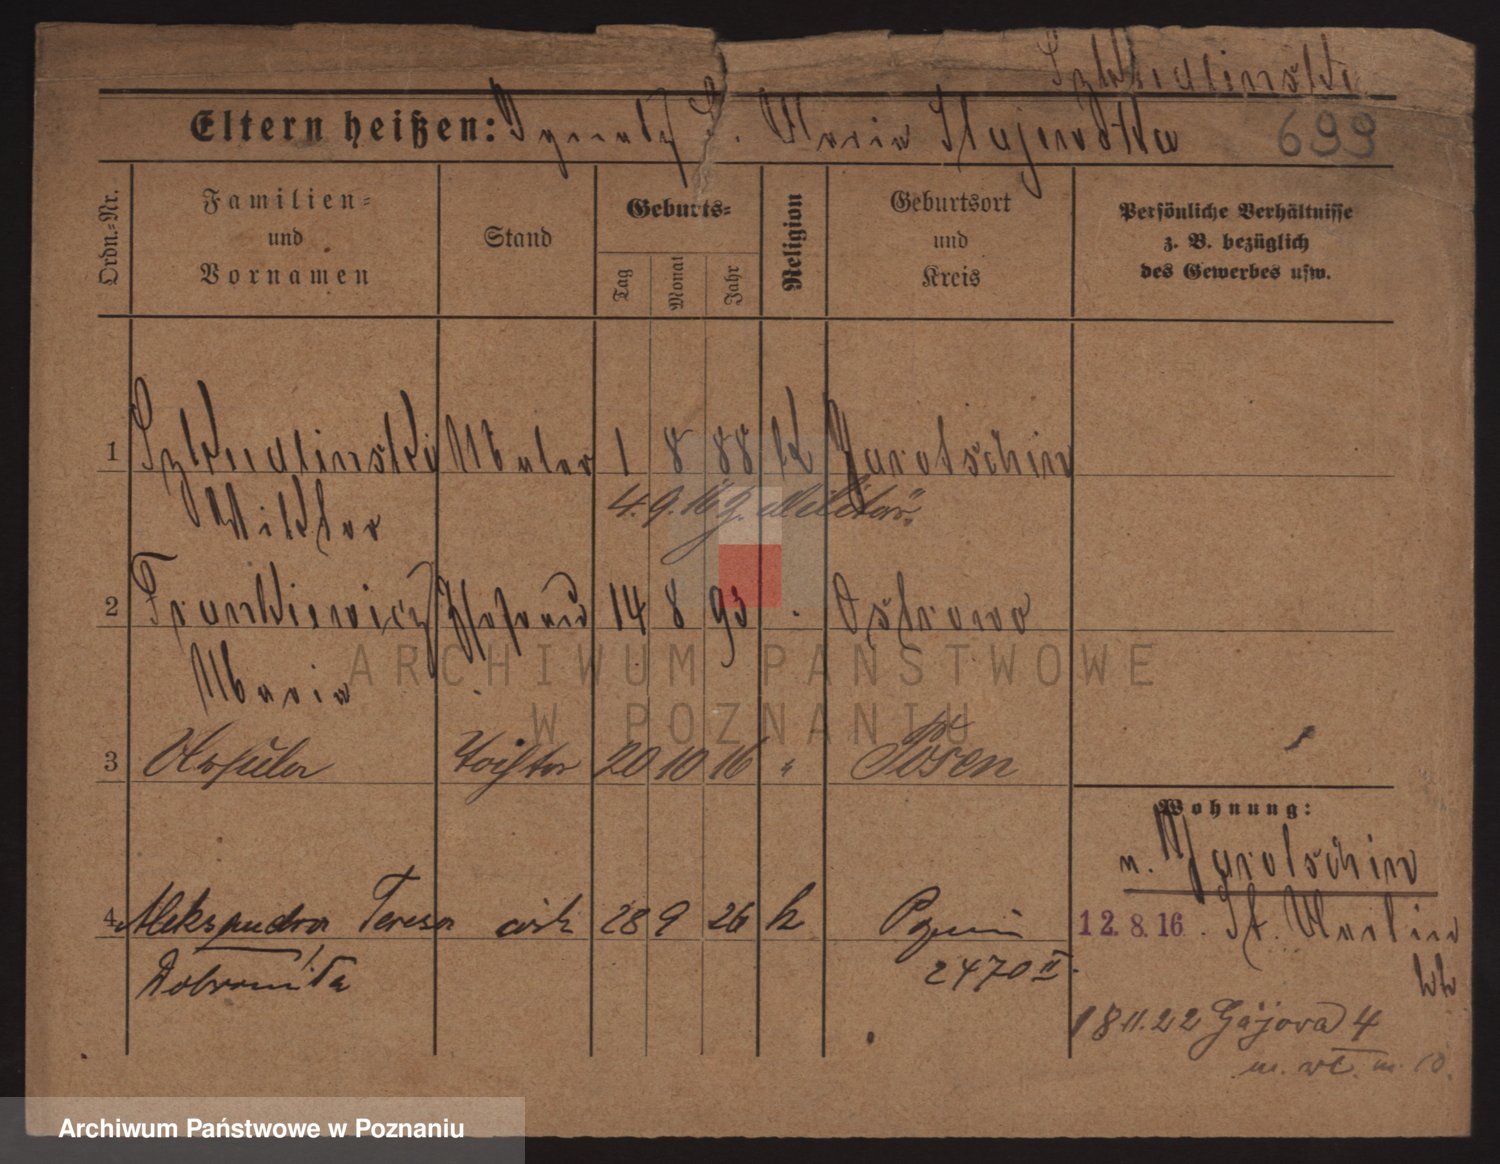 Szkudlinski
Eltern heißen: Ignatz S. Maria Stujendka 699
Ordn.-Nr.
Familien- und Vornamen
Stand
Geburts-
Tag Monat Jahr
Religion
Geburtsort und Kreis
Persönliche Verhältnisse
z. B. bezüglich
des Gewerbes usw.
1 Szkudlinski Maler 1 8 88 k Jarotschin
Wiktor 4.9.16 z. Militär.
2 Frankiewicz Ehefrau 14 8 93 Ostrowo
Maria
3 Ursula Tochter 20 10 16 " Posen
Wohnung:
n. Jarotschin
4 Aleksandra Teresa córk 28 9 26 k Poznań 12.8.16. St. Martin
Dobromiła 2470 II
18 11.22 Gajowa 4
ARCHIWUM PAŃSTWOWE
W POZNANIU
Archiwum Państwowe w Poznaniu